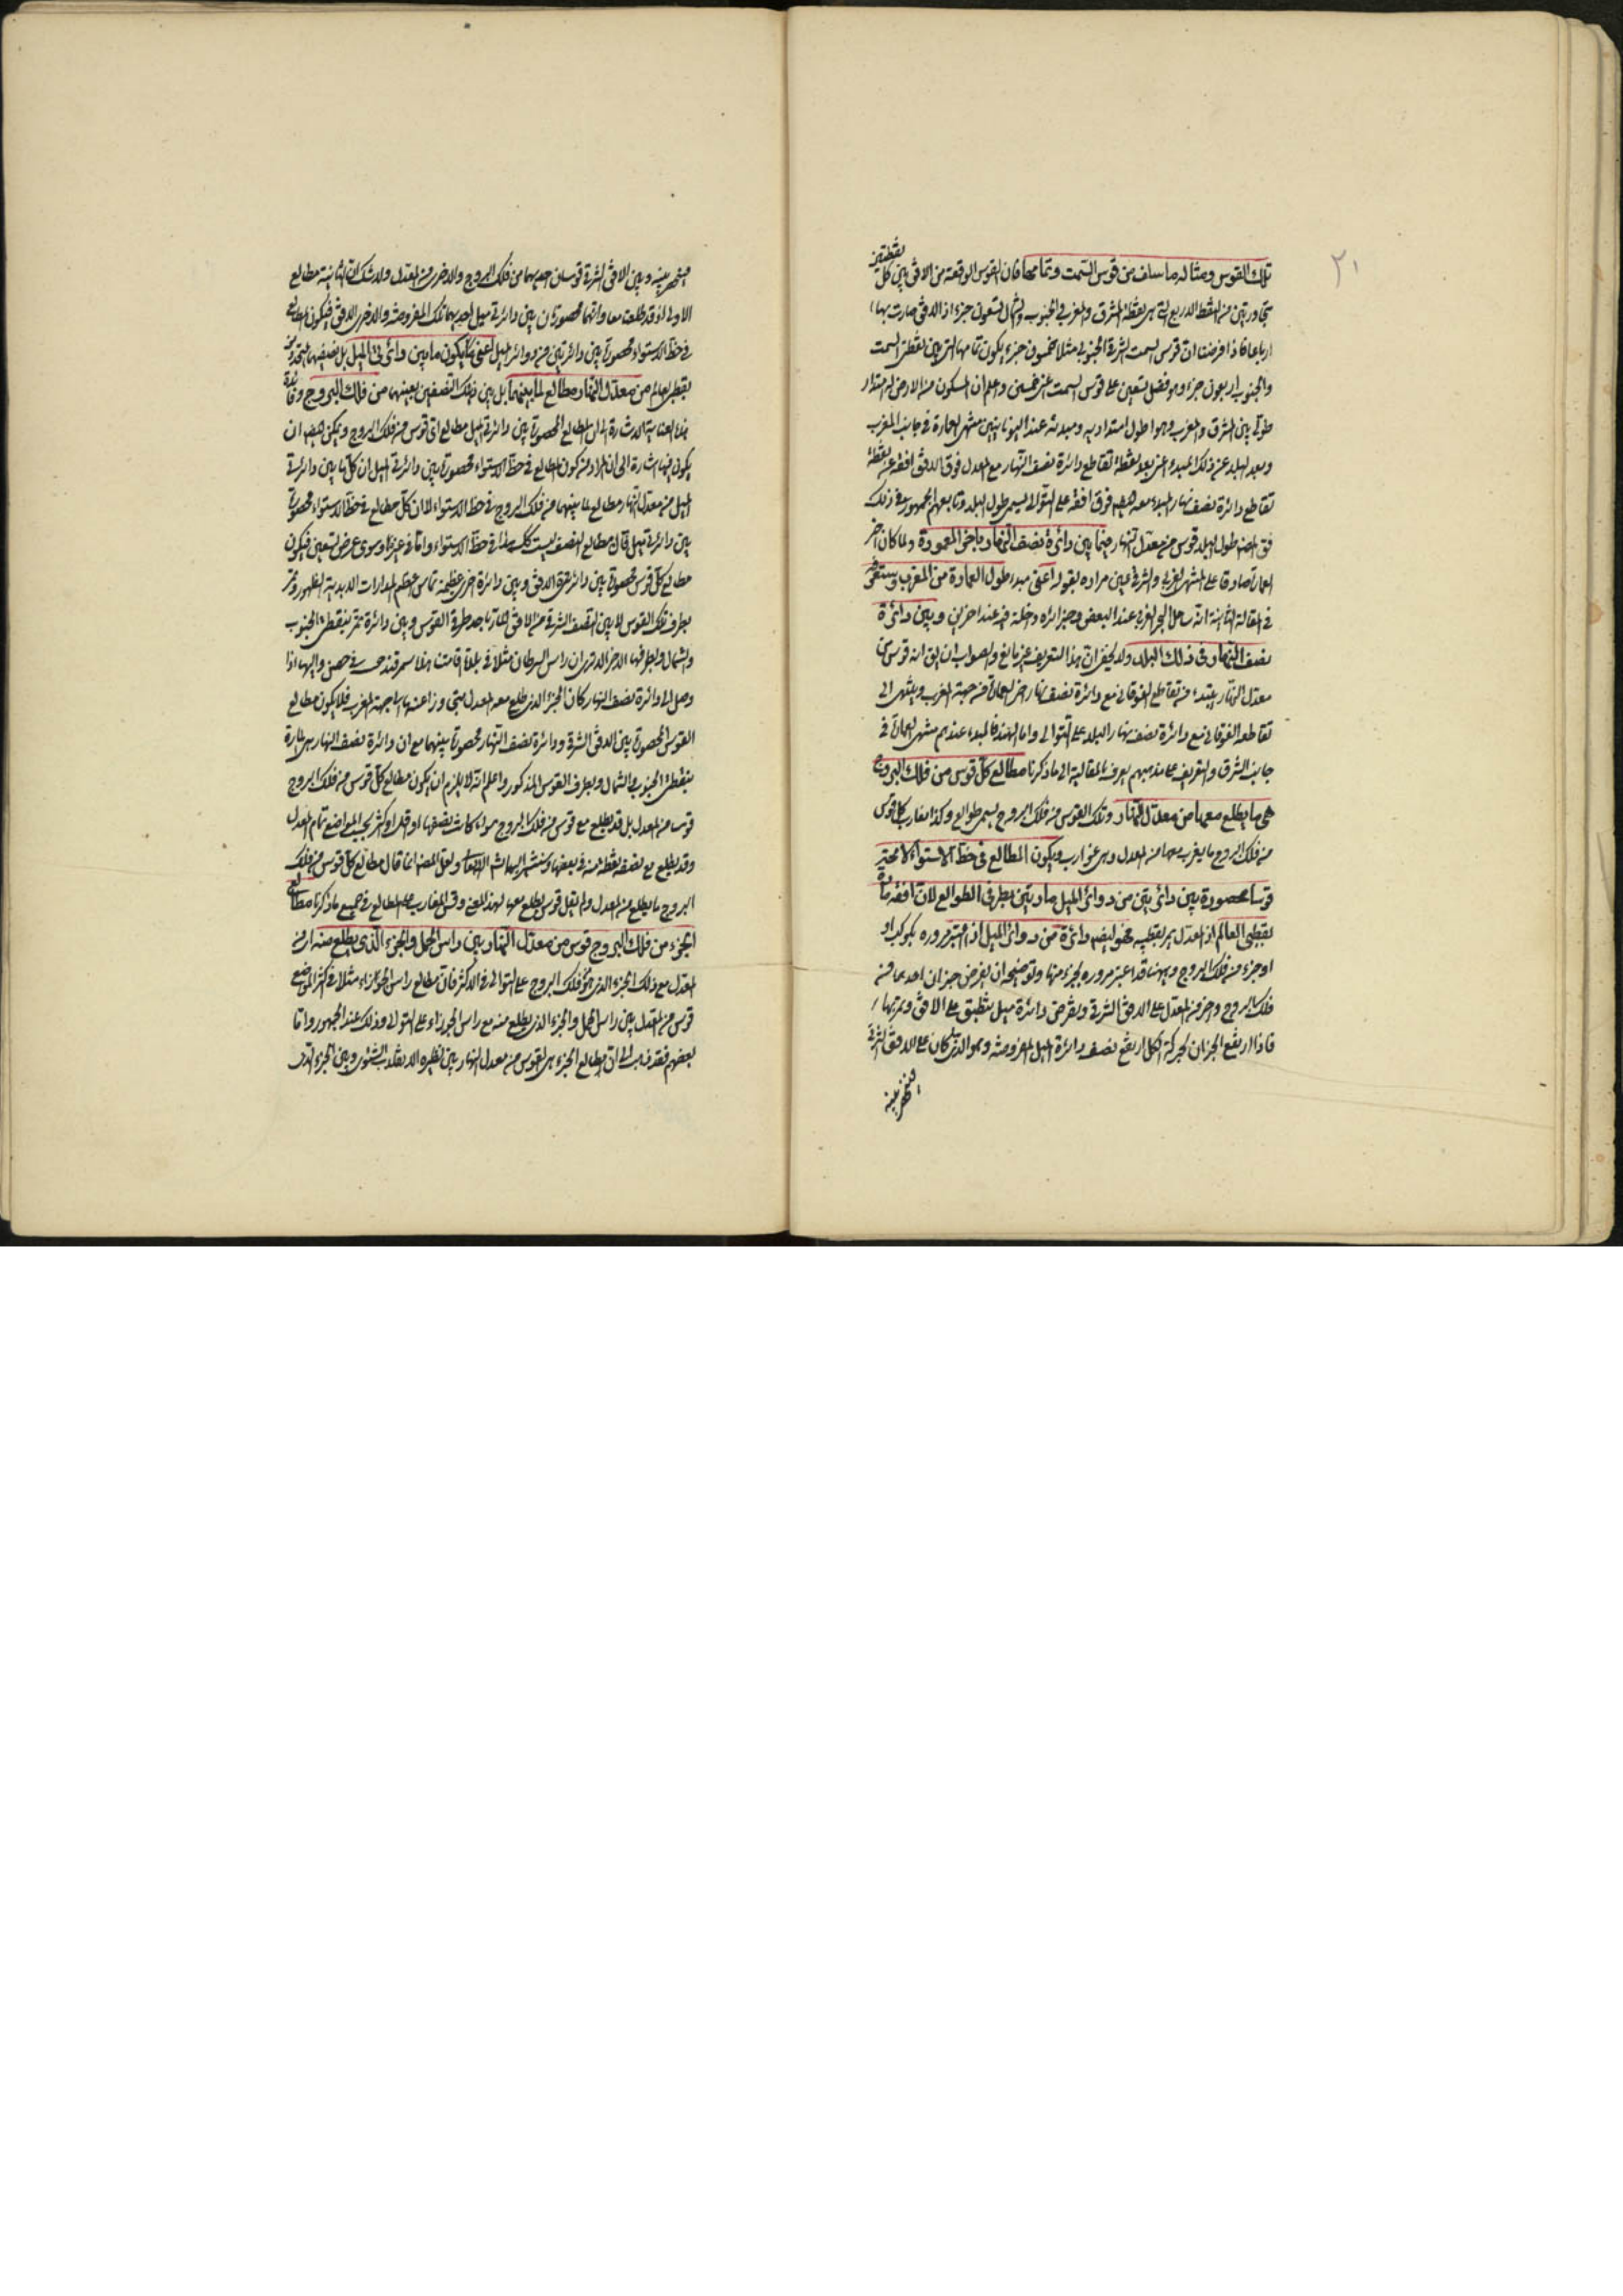 ٢١
تلك القوس ومثاله ما سلف من قوس السمت وتمامها فان القوس الواقعة من الافق بين كل نقطتين
متجاورتين من النقط الاربع التى هى نقطتا المشرق والمغرب والجنوب والشمال تسعون جزءا اذ الافق صارت بها
ارباعا فاذا فرضنا ان قوس السمت الشرقى الجنوبى مثلا خمسون جزء يكون تمامها التى بين نقطتى السمت
والجنوب اربعون جزء وهو فضل تسعين على قوس السمت اعنى خمسين واعلم ان المسكون من الارض له امتداد
طولى بين المشرق والمغرب وهو اطول امتداديه ومبدئه عند اليونانيين منتهى العمارة فى جانب المغرب
وبعد البلد عن ذلك المبدء اعنى بعد نقطة تقاطع دائرة نصف النهار مع المعدل فوق الافق افقه عن نقطة
تقاطع دائرة نصف نهار المبدء معه ايضا فوق افقه على التوالى يسمى طول البلد وتابعهم الجمهور فى ذلك
طول البلد قوس من معدل النهار فيما بين دائرة نصف النهار باخر المعمورة ولما كان اخر
العمارة صادقا على المنتهى الغربى والشرقى عين مراده بقوله اعنى مبدء طول العمارة من المغرب وستعرفه
فى المقالة الثانية انه ساحل البحر الغربى عند البعض وجزائره داخلة فيه عند اخرين وبين دائرة
نصف النهار فى ذلك البلد ولا يخفى ان هذا التعريف غير مانع والصواب ان يق انه قوس من
معدل النهار يبتدء من تقاطع الفوقانى مع دائرة نصف نهار اخر العمارة من جهة المغرب وينتهى الى
تقاطعه الفوقانى مع دائرة نصف نهار البلد على التوالى واما الهند فالمبدء عندهم منتهى العمارة فى
جانب الشرق والتعريف على مذهبهم يعرف بالمقايسة الى ما ذكرنا مطالع كل قوس من فلك البروج
هى ما يطلع معها من معدل النهار وتلك القوس من فلك البروج يسمى طوالع وكذا مغارب كل قوس
من فلك البروج ما يغرب معها من المعدل وهى غوارب ويكون المطالع فى خط الاستواء لا محة
قوسا محصورة بين دائرتين من دوائر الميل مارتين بطرفى الطوالع لان افقه مارة
بقطبى العالم اذ المعدل يمر بقطبيه فهو ايضا دائرة من دوائر الميل اذا اعتبر مروره بكوكب او
او جزء من فلك البروج وههنا قد اعتبر مروره بجزء منها وتوضيحه ان يفرض جزءان احدهما من
فلك البروج واخر من المعدل على الافق الشرقى ويفرض دائرة ميل تنطبق على الافق وتمر بهما
فاذا ارتفع الجزءان بحركة الكل ارتفع نصف دائرة الميل المفروضة وهو الذى كان على الافق الشرقى
فينحصر بينه
فينحصر بينه وبين الافق الشرقى قوسان احديهما من فلك البروج والاخرى من المعدل ولا شك ان الثانية مطالع
الاولى اذ قد طلعت معها وانهما محصورتان بين دائرتى ميل احديهما تلك المفروضة والاخرى الافق فيكون المطالع
فى خط الاستواء محصورة بين دائرتين من دوائر الميل اعنى يكون ما بين دائرتى الميل بل نصفيهما المتحدين
بقطبى العالم من معدل النهار مطالع لما بينهما بل بين ذينك النصفين بعينهما من فلك البروج وفائدة
هذه العناية الاشارة الى ان المطالع المحصورة بين دائرتى الميل مطالع اى قوس من فلك البروج ويمكن ايضا ان
يكون فيها اشارة الى ان المراد من كون المطالع فى خط الاستواء محصورة بين دائرتى الميل ان كل ما بين دائرتى
الميل من معدل النهار مطالع لما بينهما من فلك البروج فى خط الاستواء لا ان كل مطالع فى خط الاستواء محصورة
بين دائرتى ميل فان مطالع النصف ليست كك هذا فى خط الاستواء واما فى غيره وسوى عرض تسعين فيكون
مطالع كل قوس محصورة بين دائرتى الافق وبين دائرة اخرى عظيمة تماس اعظم المدارات الابدية الظهور وتمر
بطرف تلك القوس لا بين النصف الشرقى من الافق المار باحد طرفى القوس وبين دائرة تمر بنقطتى الجنوب
والشمال وبطرفها الاخر الا ترى ان راس السرطان مثلا فى بلدة اقامتنا هذه سمرقند حميت وحصنت واليها اذا
وصل الى دائرة نصف النهار كان الجزء الذى طلع معه من المعدل متجاوزا عنها الى جهة المغرب فلا يكون مطالع
القوس المحصورة بين الافق الشرقى ودائرة نصف النهار محصورة بينهما مع ان دائرة نصف النهار هى المارة
بنقطتى الجنوب والشمال وبطرف القوس المذكور واعلم انه لا يلزم ان يكون مطالع كل قوس من فلك البروج
قوسا من المعدل بل قد يطلع مع قوس من فلك البروج سواء كانت نصفها او اقل او اكثر بحسب المواضع تمام المعدل
وقد يطلع مع نصفه نقطة منه فى بعضها وستشير اليها ولعل المص انما قال مطالع كل قوس من فلك
البروج ما يطلع من المعدل ولم يقل قوس يطلع معها لهذا المعنى وقس المغارب على المطالع فى جميع ما ذكرنا مطالع
الجزء من فلك البروج قوس من معدل النهار بين راس الحمل والجزء الذى يطلع منه اى من
المعدل مع ذلك الجزء الذى من فلك البروج على التوالى فى الاكثر فان مطالع راس الجوزاء مثلا فى اكثر المواضع
قوس من المعدل بين راس الحمل والجزء الذى يطلع منه مع راس الجوزاء على التوالى وذلك عند الجمهور واما
بعضهم فقد ذهب الى ان مطالع الجزء هى القوس من معدل النهار بين نظيره الانقلاب الشتوى وبين الجزء الذى